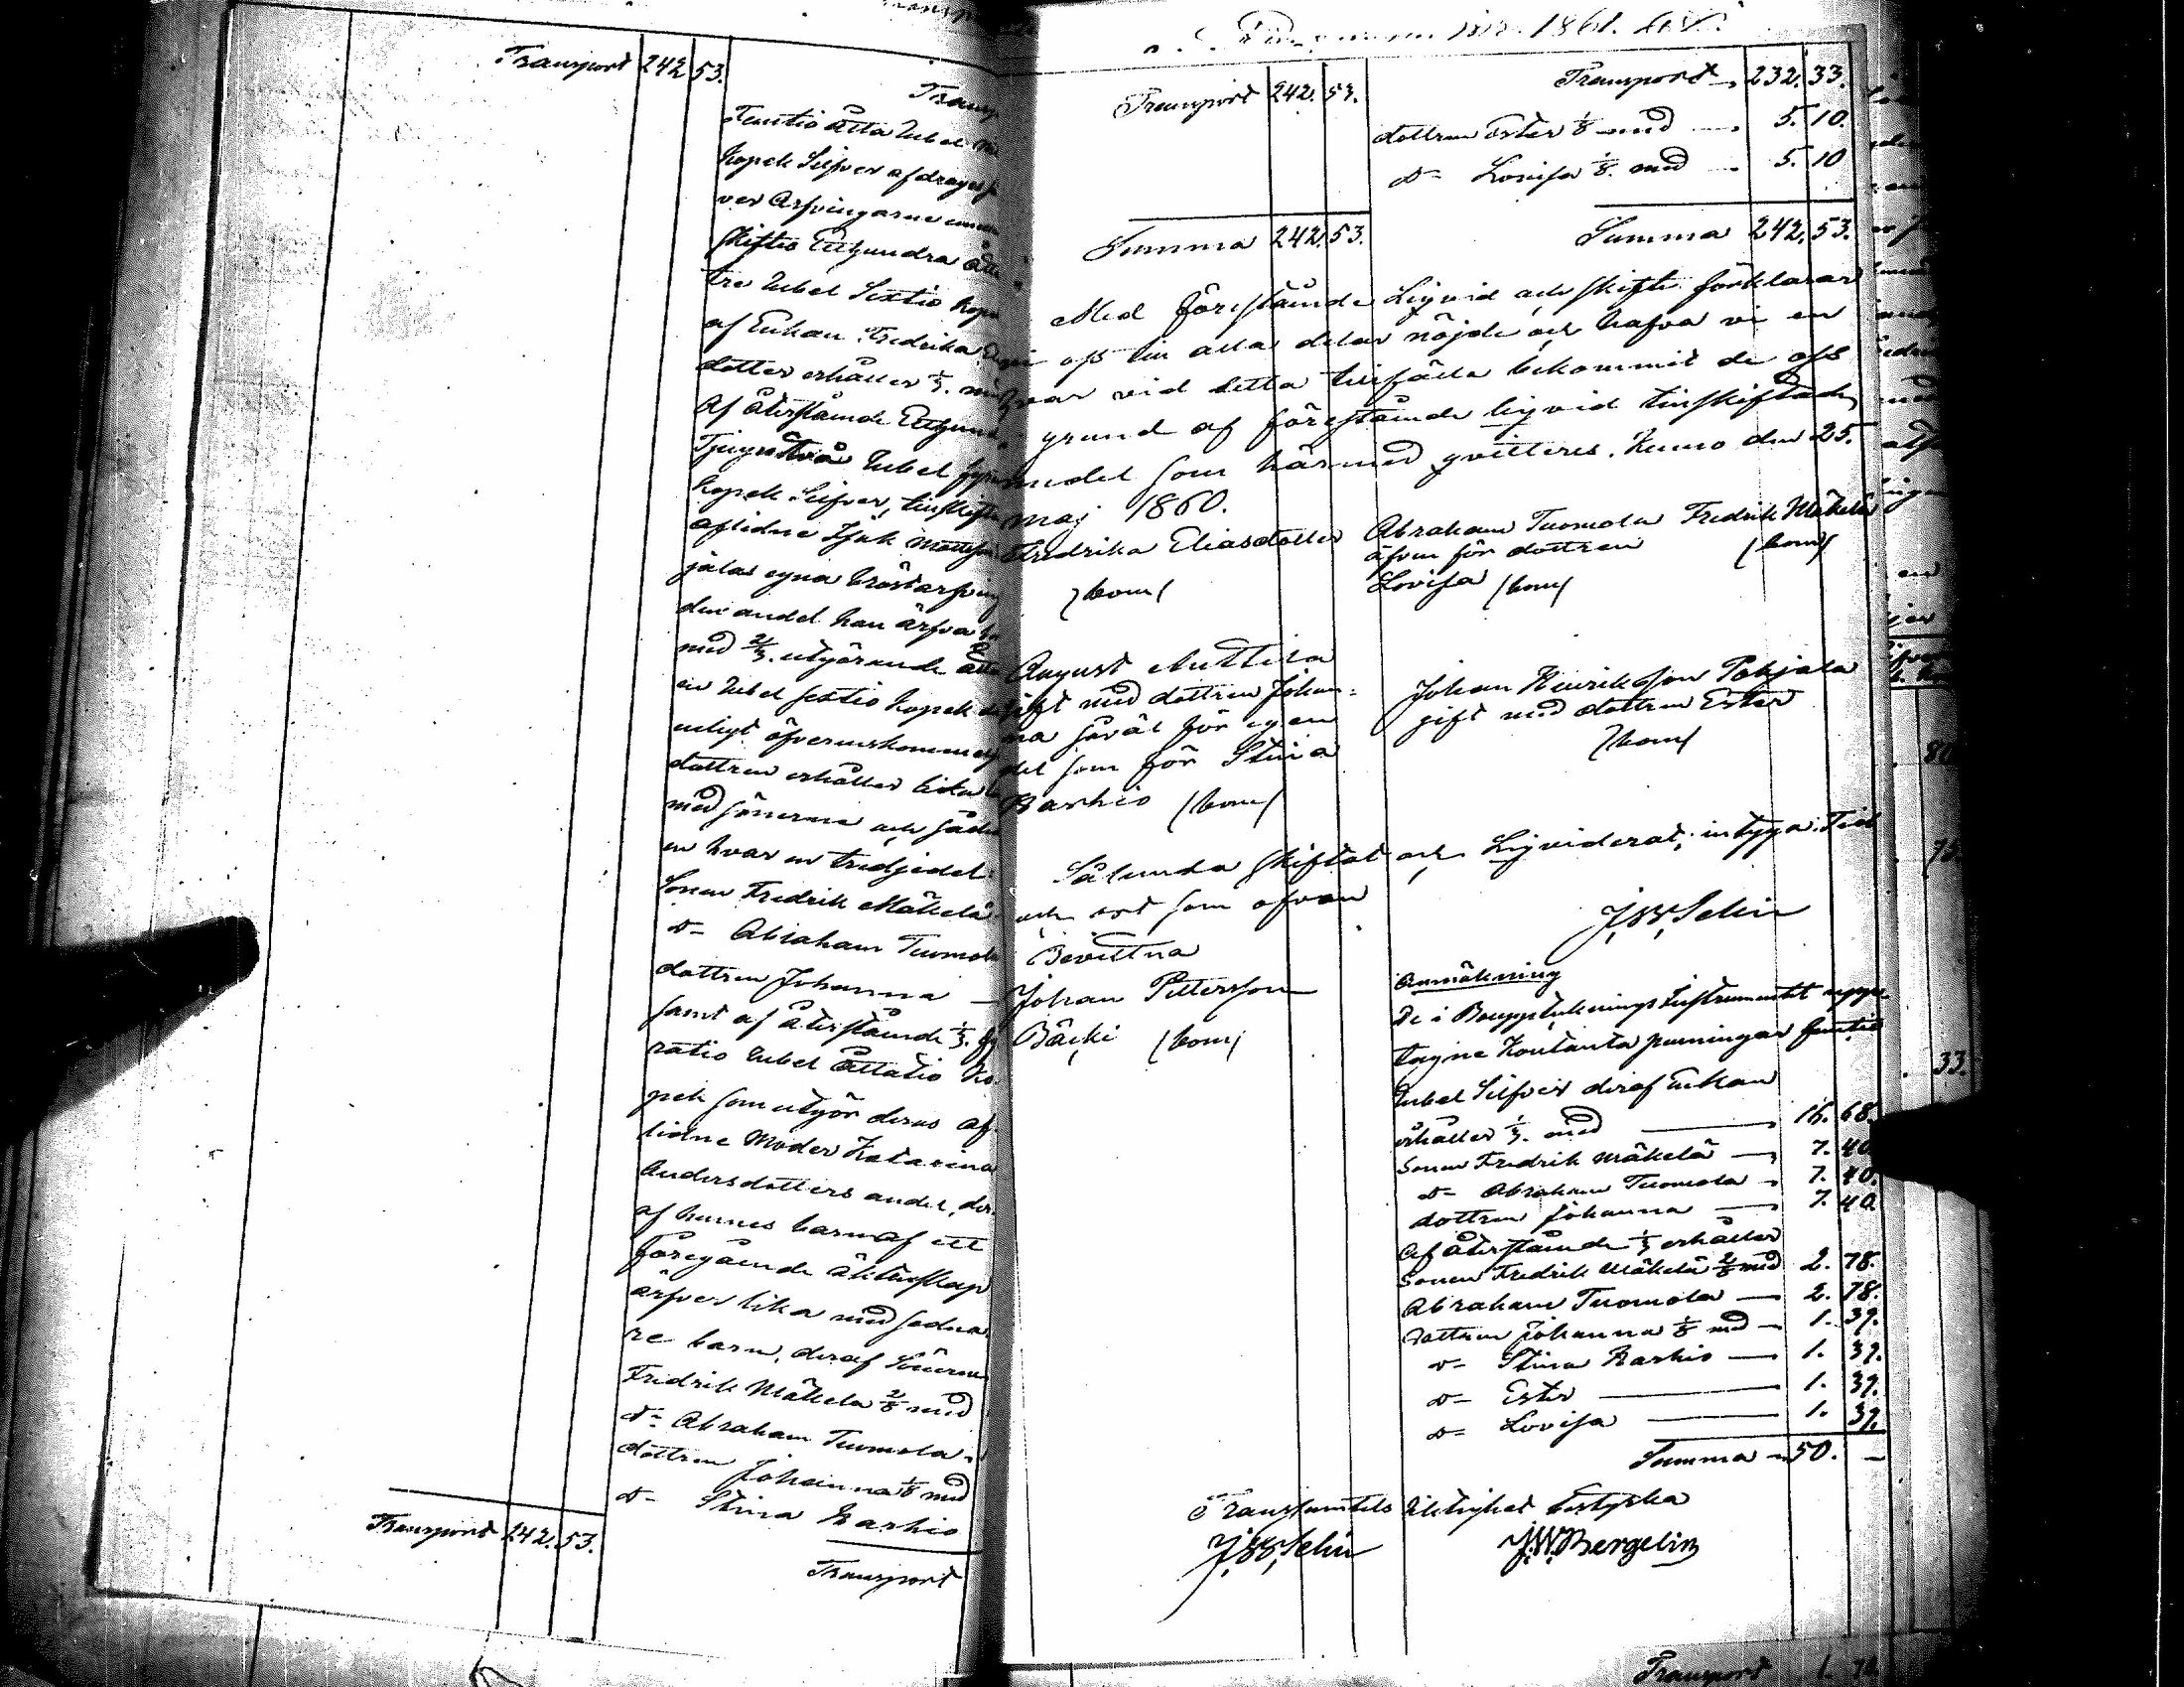 Transport 242 53.
Transp
Femtio åtta Rubel
kopek Silfver afdrages
ver Arfvingarne
skifta Etthundra åtta
tre Rubel Sextio kopek
af Enkan Fredrika
dotter erhåller 1/3. med
Af återstående Etthund
Tjugotvå Rubel
kopek Silfver, tillskifta
aflidne Isak Mattsson
jälas egna bröstarfving
den andel han ärfva
med 2/3. utgörande åtta
en Rubel sextio kopek
enligt öfverenskommelse
dottren erhåller lika
med sönerna och således
en hvar en tredjedel.
Sonen Fredrik Mäkelä
d= Abraham Tuomola
dottren Johanna —
samt af återstående 1/3. fy
ratio Rubel åttatio Ko-
pek som utgör deras af-
lidne Moder Katarina
Andersdotters andel, der-
af hennes barn af ett
föregående äktenskap
ärfver lika med sedna-
re barn, deraf Sönerne
Fredrik Mäkelä 2/8 med
d= Abraham Tuomola
dottren Johanna 1/8 med
d= Stina Raskio
Transport 242. 53.
Transport
1861.
Transport 242. 53.
Transport 232. 33.
dottren Ester 1/8 med — 5. 10.
d= Lovisa 1/8. med — 5. 10
Summa 242. 53.
Summa 242. 53.
Med förestående Liqvid och skifte förklarar
vi oss till alla delar nöjde och hafva vi en
hvar vid detta tillfälle bekommit de oss
grund af förestående liqvid tillskiftade
medel som härmed qvitteres. Kumo den 25.
Maj 1860.
Fredrika Eliasdotter
(bom)
Abraham Tuomola
äfven för dottren
Lovisa (bom)
Fredrik Mäkelä
(bom)
August Anttila
gift med dottren Johan=
na såväl för egen
del som för Stina
Raskio (bom)
Johan Henriksson Pohjala
gift med dottren Ester
(bom)
Sålunda skiftat och Liqviderat, intyga. Tid
och ort som ofvan
J. W. Selin
Bevittna
Johan Pettersson
Bäcki (bom)
Anmärkning
De i Bouppteknings Instrumentet upp-
tagne Kontanta penningar femtio
Rubel Silfver deraf Enkan
erhåller 1/3. med — 16. 68.
Sonen Fredrik Mäkelä — 7. 40
d= Abraham Tuomola — 7. 40.
dottren Johanna — 7. 40
Af återstående 1/3 erhåller
Sonen Fredrik Mäkelä 2/8 med 2. 78.
Abraham Tuomola — 2. 78.
dottren Johanna 1/8 med — 1. 39.
d= Stina Raskio — 1. 39.
d= Ester — 1. 39.
d= Lovisa — 1. 39.
Summa — 50. —
Transsumtets riktighet bestyrka
J. W. Selin
J. W. Bergelin
80
75
33.
Transport 1.